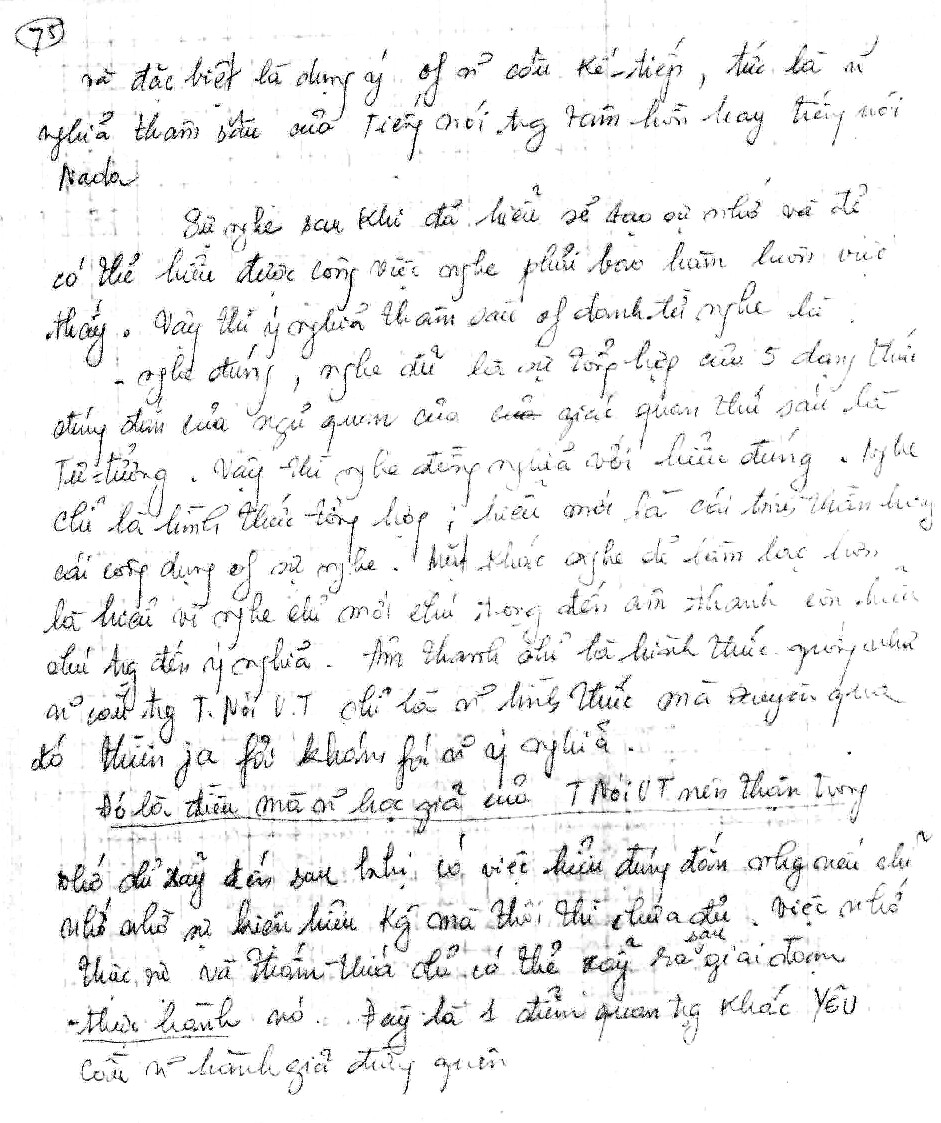 75
và đặc biệt là dụng ý of n~ câu kế-tiếp, tức là ý
nghĩa thâm sâu của Tiếng nói tg tâm hồn hay tiếng nói
Nada
Sự nghe sau khi đã hiểu sẽ tạo sự nhớ và để
có thể hiểu được công việc nghe phải bao hàm luôn việc
thấy. Vậy thì ý nghĩa thâm sâu of danh-từ nghe là
- nghe đúng, nghe đủ là sự tổng-hợp của 5 dạng thức
đúng đắn của ngũ quan của giác quan thứ sáu là
Tư-tưởng. Vậy thì nghe đồng nghĩa với hiểu đúng. Nghe
chỉ là hình thức tổng hợp; hiểu mới là cái tinh thần hay
cái công dụng of sự nghe. Mặt khác nghe dễ lầm lạc hơn
là hiểu vì nghe chỉ mới chú trọng đến âm thanh còn hiểu
chú tg đến ý nghĩa. Âm thanh chỉ là hình thức giống như
n~ câu tg T.Nói V.T chỉ là n~ hình thức mà xuyên qua
đó thiền ja fải khám fá n~ ý nghĩa.
Đó là điều mà n~ học giả của T Nói VT nên thận trọng
nhớ chỉ xẩy đến sau khi có việc hiểu đúng đắn nhg nếu chỉ
nhớ nhờ sự hiểu hiểu kỹ mà thôi thì chưa đủ. Việc nhớ
thực sự và thấm-thía chỉ có thể xẩy ra sau giai đoạn
-thực hành nó. Đây là 1 điểm quan tg khác YẾU
Cầu n~ hành giả đừng quên